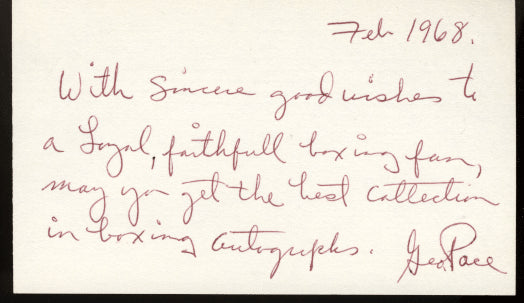 Feb 1968.
With Sincere good wishes to
a Loyal, faithfull boxing fan,
may you get the best collection
in boxing autographs. Geo Pace